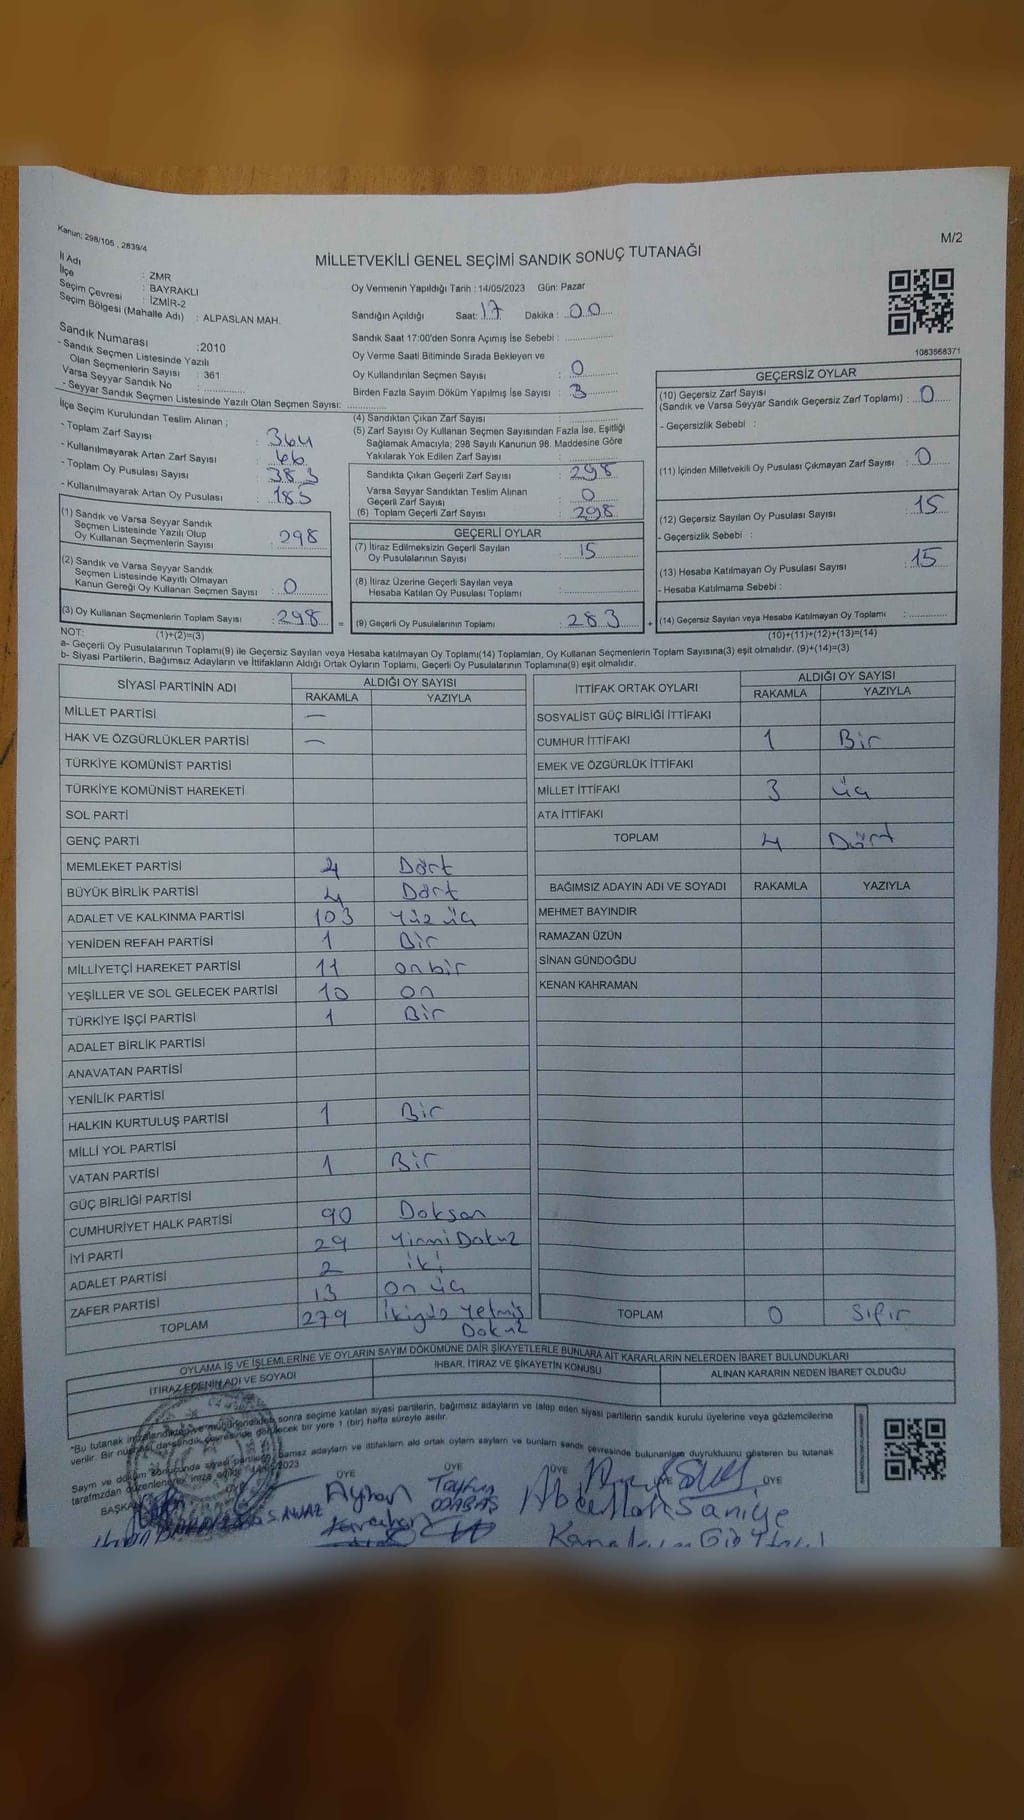 Kanun: 298/105 , 2839/4
M/2
MİLLETVEKİLİ GENEL SEÇİMİ SANDIK SONUÇ TUTANAĞI
İl Adı : ZMR
İlçe : BAYRAKLI
Seçim Çevresi : İZMİR-2
Seçim Bölgesi (Mahalle Adı) : ALPASLAN MAH.
Sandık Numarası :2010
- Sandık Seçmen Listesinde Yazılı
Olan Seçmenlerin Sayısı : 361
Varsa Seyyar Sandık No :
- Seyyar Sandık Seçmen Listesinde Yazılı Olan Seçmen Sayısı:
İlçe Seçim Kurulundan Teslim Alınan ;
- Toplam Zarf Sayısı : 364
- Kullanılmayarak Artan Zarf Sayısı : 66
- Toplam Oy Pusulası Sayısı : 383
- Kullanılmayarak Artan Oy Pusulası : 185
(1) Sandık ve Varsa Seyyar Sandık
Seçmen Listesinde Yazılı Olup
Oy Kullanan Seçmenlerin Sayısı : 298
(2) Sandık ve Varsa Seyyar Sandık
Seçmen Listesinde Kayıtlı Olmayan
Kanun Gereği Oy Kullanan Seçmen Sayısı : 0
(3) Oy Kullanan Seçmenlerin Toplam Sayısı : 298 =
(1)+(2)=(3)
Oy Vermenin Yapıldığı Tarih : 14/05/2023 Gün: Pazar
Sandığın Açıldığı Saat: 17 Dakika : 00
Sandık Saat 17:00'den Sonra Açımış İse Sebebi :
Oy Verme Saati Bitiminde Sırada Bekleyen ve
Oy Kullandırılan Seçmen Sayısı : 0
Birden Fazla Sayım Döküm Yapılmış İse Sayısı : 3
(4) Sandıktan Çıkan Zarf Sayısı :
(5) Zarf Sayısı Oy Kullanan Seçmen Sayısından Fazla İse, Eşitliği
Sağlamak Amacıyla; 298 Sayılı Kanunun 98. Maddesine Göre
Yakılarak Yok Edilen Zarf Sayısı :
Sandıkta Çıkan Geçerli Zarf Sayısı : 298
Varsa Seyyar Sandıktan Teslim Alınan
Geçerli Zarf Sayısı : 0
(6) Toplam Geçerli Zarf Sayısı : 298
GEÇERLİ OYLAR
(7) İtiraz Edilmeksizin Geçerli Sayılan
Oy Pusulalarının Sayısı : 15
(8) İtiraz Üzerine Geçerli Sayılan veya
Hesaba Katılan Oy Pusulası Toplamı :
(9) Geçerli Oy Pusulalarının Toplamı : 283 +
1083568371
GEÇERSİZ OYLAR
(10) Geçersiz Zarf Sayısı
(Sandık ve Varsa Seyyar Sandık Geçersiz Zarf Toplamı) : 0
- Geçersizlik Sebebi :
(11) İçinden Milletvekili Oy Pusulası Çıkmayan Zarf Sayısı : 0
(12) Geçersiz Sayılan Oy Pusulası Sayısı : 15
- Geçersizlik Sebebi :
(13) Hesaba Katılmayan Oy Pusulası Sayısı : 15
- Hesaba Katılmama Sebebi :
(14) Geçersiz Sayılan veya Hesaba Katılmayan Oy Pusulası Toplamı :
(10)+(11)+(12)+(13)=(14)
NOT:
a- Geçerli Oy Pusulalarının Toplamı(9) ile Geçersiz Sayılan veya Hesaba katılmayan Oy Toplamı(14) Toplamları, Oy Kullanan Seçmenlerin Toplam Sayısına(3) eşit olmalıdır. (9)+(14)=(3)
b- Siyasi Partilerin, Bağımsız Adayların ve İttifakların Aldığı Ortak Oyların Toplamı, Geçerli Oy Pusulalarının Toplamına(9) eşit olmalıdır.
SİYASİ PARTİNİN ADI ALDIĞI OY SAYISI
RAKAMLA YAZIYLA
MİLLET PARTİSİ —
HAK VE ÖZGÜRLÜKLER PARTİSİ —
TÜRKİYE KOMÜNİST PARTİSİ
TÜRKİYE KOMÜNİST HAREKETİ
SOL PARTİ
GENÇ PARTİ
MEMLEKET PARTİSİ 4 Dört
BÜYÜK BİRLİK PARTİSİ 4 Dört
ADALET VE KALKINMA PARTİSİ 103 Yüz üç
YENİDEN REFAH PARTİSİ 1 Bir
MİLLİYETÇİ HAREKET PARTİSİ 11 onbir
YEŞİLLER VE SOL GELECEK PARTİSİ 10 on
TÜRKİYE İŞÇİ PARTİSİ 1 Bir
ADALET BİRLİK PARTİSİ
ANAVATAN PARTİSİ
YENİLİK PARTİSİ
HALKIN KURTULUŞ PARTİSİ 1 Bir
MİLLİ YOL PARTİSİ
VATAN PARTİSİ 1 Bir
GÜÇ BİRLİĞİ PARTİSİ
CUMHURİYET HALK PARTİSİ 90 Doksan
İYİ PARTİ 29 Yirmi Dokuz
ADALET PARTİSİ 2 iki
ZAFER PARTİSİ 13 on üç
TOPLAM 279 İkiyüz Yetmiş
Dokuz
İTTİFAK ORTAK OYLARI ALDIĞI OY SAYISI
RAKAMLA YAZIYLA
SOSYALİST GÜÇ BİRLİĞİ İTTİFAKI
CUMHUR İTTİFAKI 1 Bir
EMEK VE ÖZGÜRLÜK İTTİFAKI
MİLLET İTTİFAKI 3 üç
ATA İTTİFAKI
TOPLAM 4 Dört
BAĞIMSIZ ADAYIN ADI VE SOYADI RAKAMLA YAZIYLA
MEHMET BAYINDIR
RAMAZAN ÜZÜN
SİNAN GÜNDOĞDU
KENAN KAHRAMAN
TOPLAM 0 Sıfır
OYLAMA İŞ VE İŞLEMLERİNE VE OYLARIN SAYIM DÖKÜMÜNE DAİR ŞİKAYETLERLE BUNLARA AİT KARARLARIN NELERDEN İBARET BULUNDUKLARI
İTİRAZ EDENİN ADI VE SOYADI İHBAR, İTİRAZ VE ŞİKAYETİN KONUSU ALINAN KARARIN NEDEN İBARET OLDUĞU
"Bu tutanak imzalandıktan ve mühürlendikten sonra seçime katılan siyasi partilerin, bağımsız adayların ve talep eden siyasi partilerin sandık kurulu üyelerine veya gözlemcilerine
verilir. Bir nüshası da sandık çevresinde görülecek bir yere 1 (bir) hafta süreyle asılır.
Sayım ve döküm sonucunda siyasi partilerin adayların ve ittifakların ortak oyların sayıların ve bunların sandık çevresinde bulunanlara duyruktuunu gösteren bu tutanak
tarafımızdan düzenlenerek imza edildi.
BAŞKAN ÜYE ÜYE ÜYE ÜYE
Ayhan Tayfun Abdullah Saniye